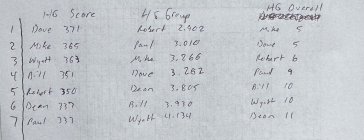 HG Score HG Group HG Overall
1 Dave 371 Robert 2.902 Mike 5
2 Mike 365 Paul 3.010 Dave 5
3 Wyatt 363 Mike 3.266 Robert 6
4 Bill 351 Dave 3.282 Paul 9
5 Robert 350 Dean 3.805 Bill 10
6 Dean 337 Bill 3.930 Wyatt 10
7 Paul 333 Wyatt 4.134 Dean 11